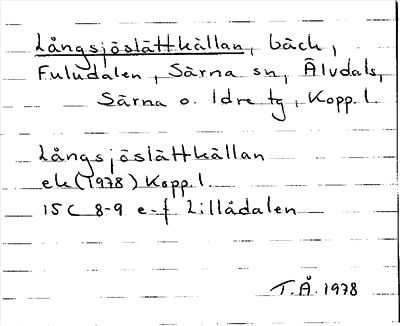 Långsjöslättkällan, bäck,
Fuludalen, Särna sn, Älvdals,
Särna o. Idre tg, Kopp. l.
Långsjöslättkällan
ek (1978) Kopp. l.
15C 8-9 e-f Lillådalen
T.Å. 1978